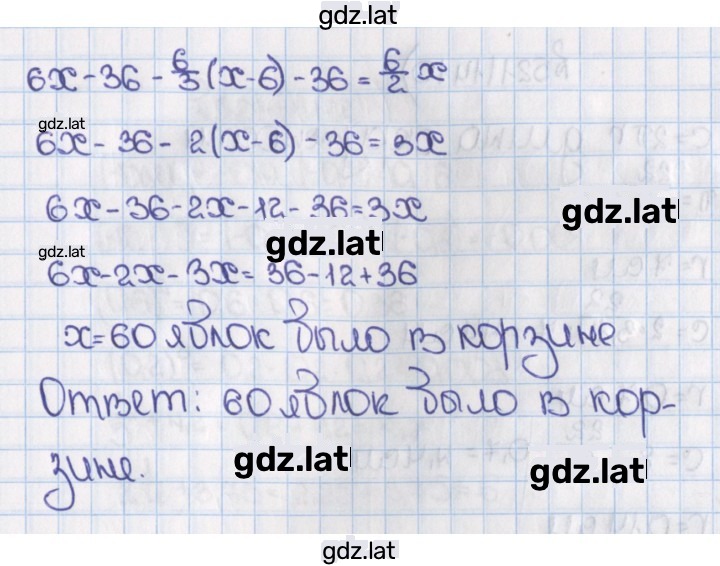 gdz.lat
6x - 36 - 6/3 (x-6) - 36 = 6/2 x
gdz.lat
6x - 36 - 2(x-6) - 36 = 3x
6x - 36 - 2x - 12 - 36 = 3x
gdz.lat
gdz.lat
gdz.lat
6x - 2x - 3x = 36 - 12 + 36
x = 60 яблок было в корзине
Ответ: 60 яблок было в кор-
зине.
gdz.lat
gdz.lat
gdz.lat